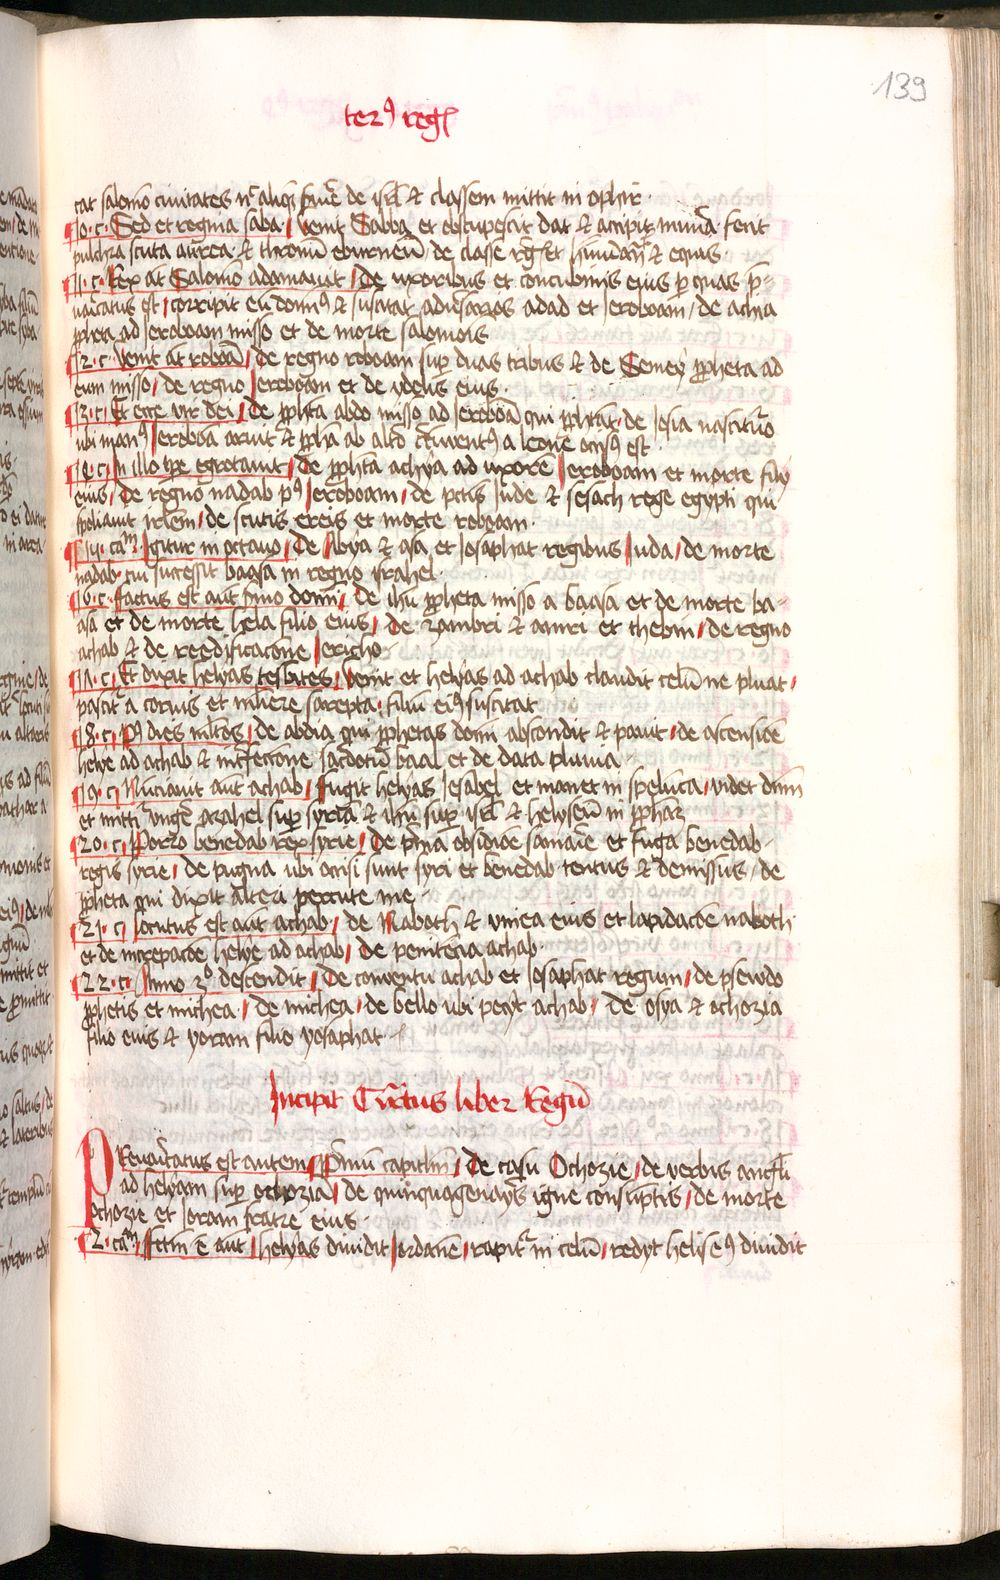 139
terꝰ regꝭ
cat salomo ciuitates de isrl & classem mittit in ophir
10 · c · Sed et regina saba / venit Sabba et obstupescit dat & accipit mūa fecit
pulchra scuta aurea & thronum eburneū de classe & equis ·
11 · c · Rex āt Salomō adamauit / de uxoribus et concubinis eius p quas p-
uaricatus est / corripit eū domīꝰ & suscitat aduersarios adad et Jeroboam / de achia
ppheta ad Jeroboam misso et de morte salomōis
12 · c · Venit āt roboā / de regno roboam sup duas tribus & de Semey ppheta ad
eum misso / de regno Jeroboam et de ydolis eius ·
13 · c · Et ecce vir dei / de ppheta abdo misso ad Jeroboā qui pphtat de Josia nascituro
ubi manꝰ Jeroboā aruit & ppha ab alto a leone occisꝰ est ·
14 · c · In illo tpe egrotauit / De ppheta achya ad uxorē Jeroboam et morte filij
eius / de regno nadab pꝰ Jeroboam / de pctis Jude & sesach rege egypti qui
spoliauit irlem / de scutis ereis et morte roboam ·
15 · cam · Igitur in octauo / De Abya & asa et Josaphat regibus Juda / de morte
nadab cui successit baasa in regno israhel
16 · c · Factus est aut sermo domī / de ihu ppheta misso a baasa et de morte ba-
asa et de morte hela filio eius / de zambri & amri et thebni / de regno
achab & de reedificatione Jericho
17 · c · Et dixit helyas tesbites / venit et helyas ad achab claudit celū ne pluat /
pascitr a coruis et muliere sarepta · filiū eiꝰ suscitat
18 · c · Pꝰ dies mltos / de abdia qui pphetas domī abscondit & pauit / de ascensiōe
helye ad achab & interfectione sacerdotū baal et de data pluuia
19 · c · Nūciauit aut achab / Fugit helyas Jesabel et manet in spelūca / videt dnm
et mittitr ungere azahel sup syriā & ihū sup isrl & helyseū in pphaz
20 · c · Porro benedab rex syrie / De pma obsidiōe samarie et fuga benedab
regis syrie / de pugna ubi occisi sunt syri et benedab tentus & dimissus / de
ppheta qui dixit alteri percute me
21 · c · locutus est aut achab / de Naboth & vinea eius et lapidacōe naboth
et de increpacōe helye ad achab / de penitēcia achab ·
22 · c · Anno 3o descendit / De conuentu achab et Josaphat regum / de pseudo
pphetis et michea · / De michea / de bello ubi peryt achab / De osya & ochozia
filio eius & yoram filio yosaphat
Incipit Quartus liber Regū
Preuaricatus est autem / Primū capitlm / De casu Ochozie / de verbis angli
ad helyam sup ochozia / de quinquagenarys igne consūptis / de morte
ochozie et Joram fratre eius ·
2 · cam · Fctm ē aut / helyas diuidit Jordanē / rapitr in celū / redyt heliseꝰ diuidit